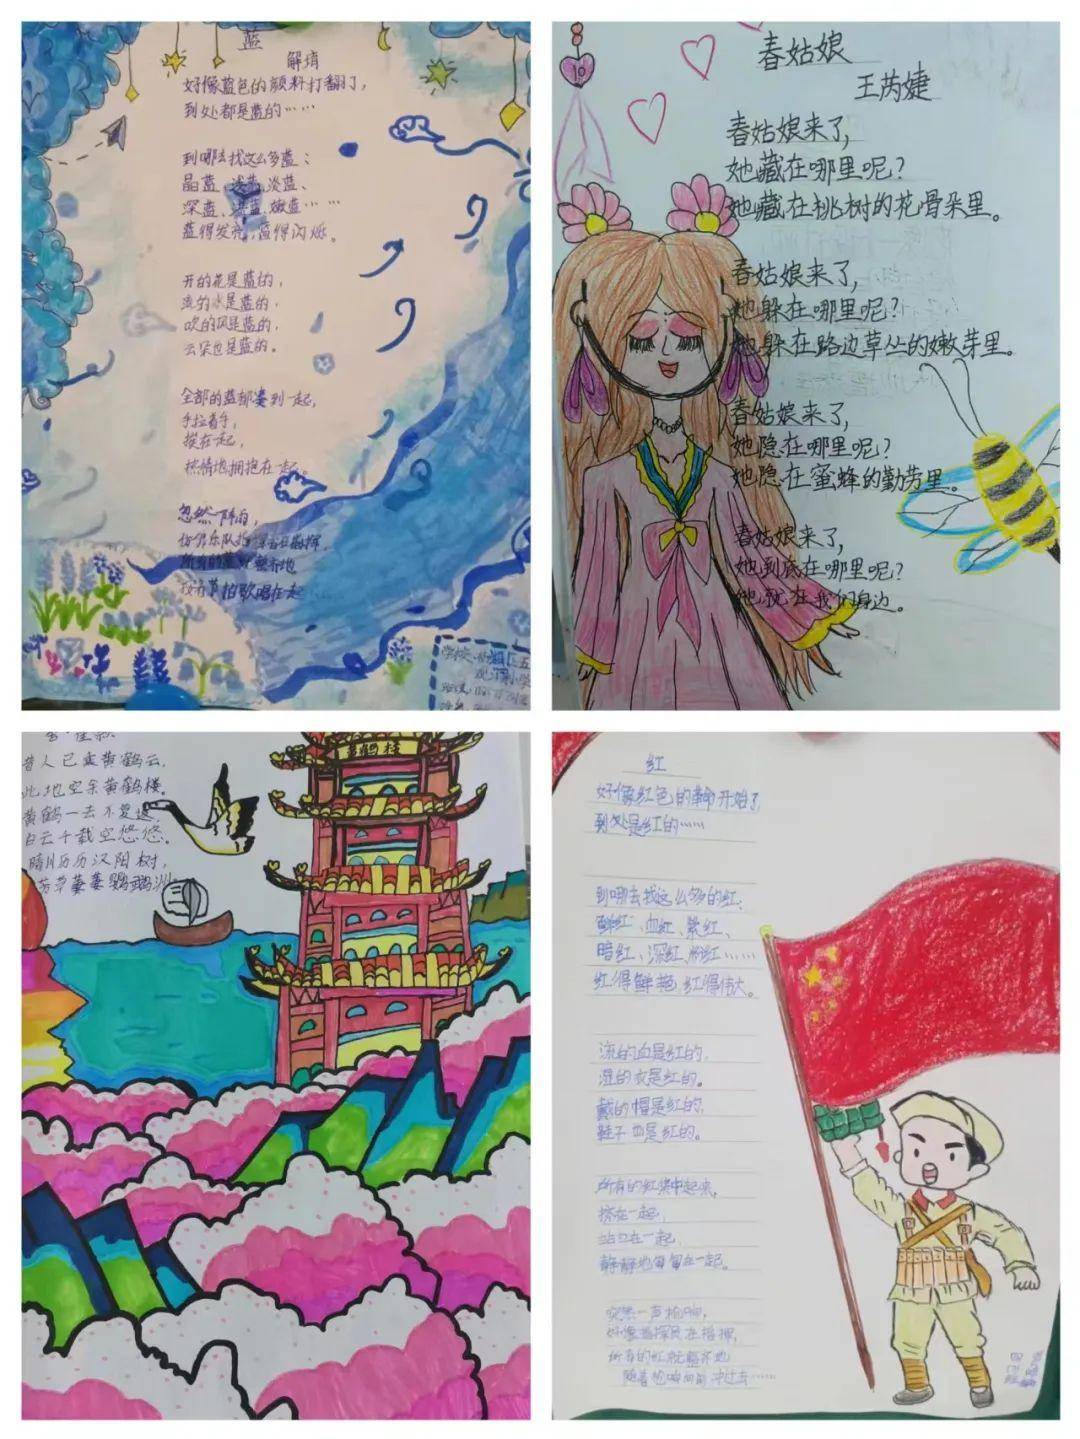 蓝
解堉
好像蓝色的颜料打翻了,
到处都是蓝的……
到哪去找这么多蓝:
晶蓝、浅蓝、淡蓝、
深蓝、 嫩蓝……
蓝得发亮,蓝得闪烁。
开的花是蓝的,
流的水是蓝的,
吹的风是蓝的,
云朵也是蓝的。
全部的蓝都凑到一起,
手拉着手,
挨在一起,
热情地拥抱在一起。
忽然一阵雨,
所有的蓝就整齐地
按着节拍歌唱在起……
春姑娘
王芮婕
春姑娘来了,
她藏在哪里呢?
她藏在桃树的花骨朵里。
春姑娘来了,
她躲在哪里呢?
她躲在路边草丛的嫩芽里。
春姑娘来了,
她隐在哪里呢?
她隐在蜜蜂的勤劳里。
春姑娘来了,
她到底在哪里呢?
她就在我们身边。
10
昔人已乘黄鹤云,
此地空余黄鹤楼。
黄鹤一去不复返,
白云千载空悠悠。
晴川历历汉阳树,
芳草萋萋鹦鹉洲。
黄鹤楼
红
好像红色的革命开始了
到处是红的……
到哪去找这么多的红:
鲜红、血红、紫红、
暗红、深红、粉红……
红得鲜艳,红得伟大。
流的血是红的,
湿的衣是红的。
戴的帽是红的,
鞋子也是红的。
所有的红集中起来,
挤在一起,
站立在一起,
静静地匍匐在一起。
突然一声枪响,
好像指挥员在指挥,
所有的红就整齐地
随着枪响向前冲过去……